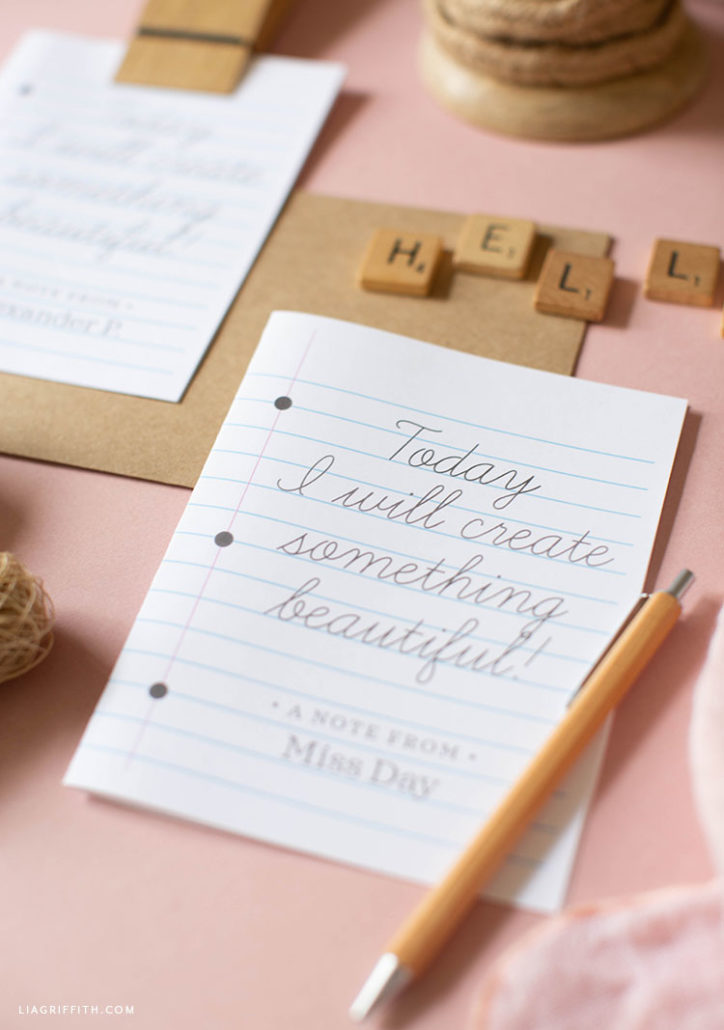 Today
I will create
something
beautiful!
A NOTE FROM
Alexander P.
H4
E1
L1
L1
Today
I will create
something
beautiful!
• A NOTE FROM •
Miss Day
LIAGRIFFITH.COM